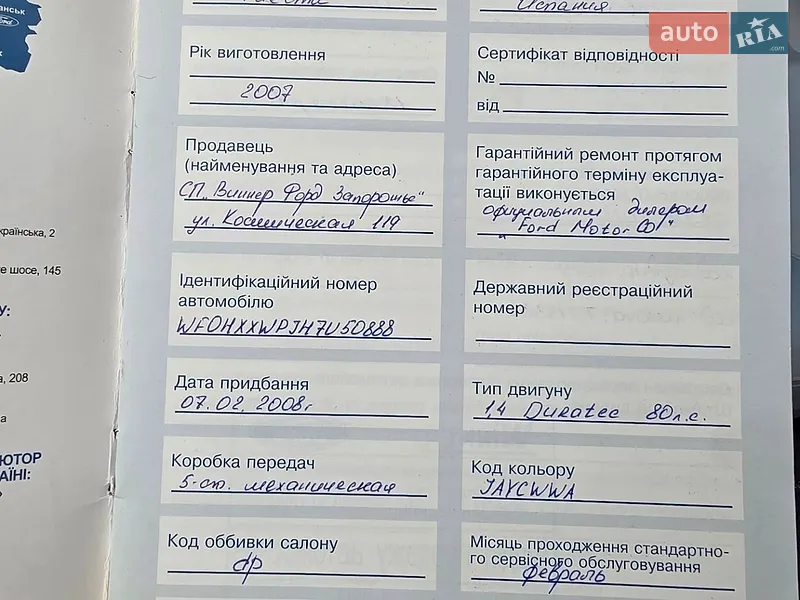 анськ
Ford
Испания
auto RIA .com
Рік виготовлення
2007
Сертифікат відповідності
№
від
Продавець
(найменування та адреса)
СП „Виннер Форд Запорожье"
ул. Космическая 119
Гарантійний ремонт протягом
гарантійного терміну експлуа-
тації виконується
официальным дилером
"Ford Motor Co"
країнська, 2
е шосе, 145
У:
Ідентифікаційний номер
автомобілю
WF0HXXWPJH7U50888
Державний реєстраційний
номер
, 208
а
Дата придбання
07.02.2008г
Тип двигуну
1,4 Duratec 80л.с.
ЮТОР
АЇНІ:
Коробка передач
5-ст. механическая
Код кольору
JAYCWWA
Код оббивки салону
Місяць проходження стандартно-
го сервісного обслуговування
февраль